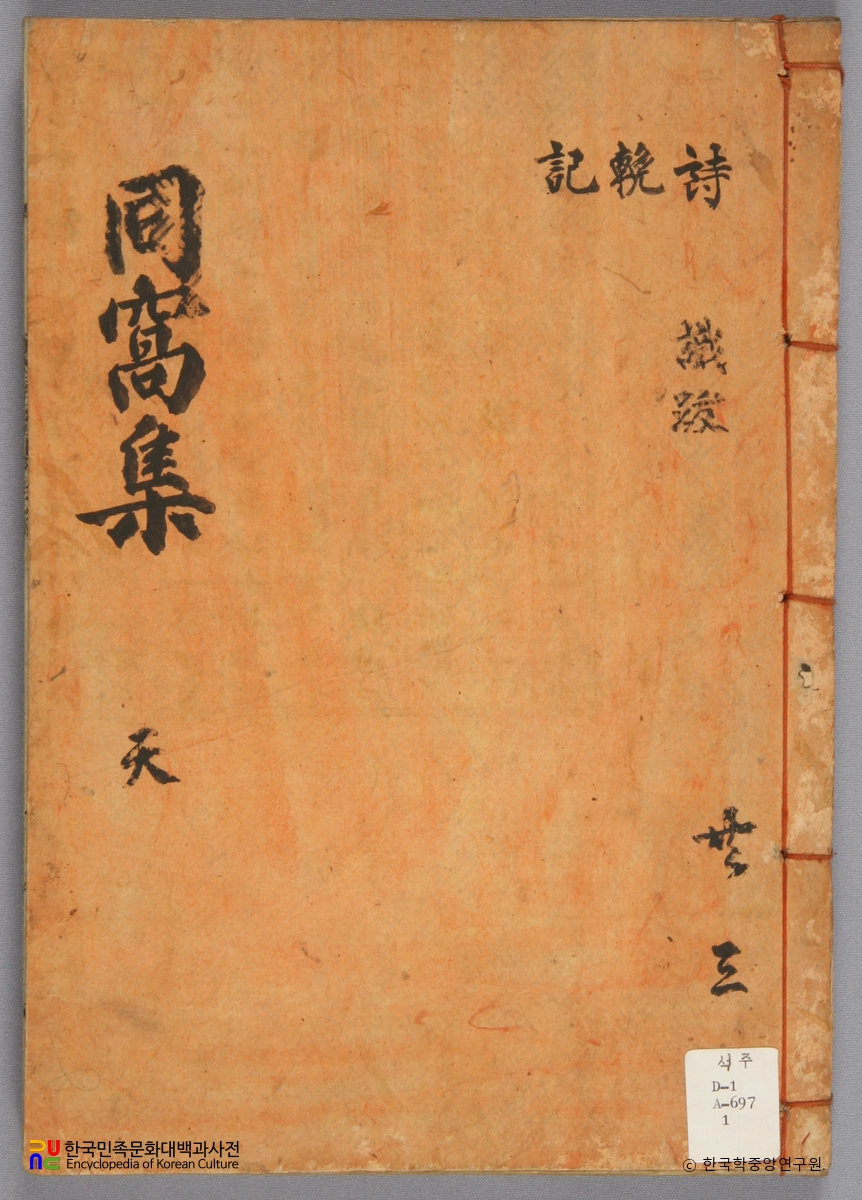 詩 輓 記
識跋
共 三
同窩集
天
석주
D-1
A-697
1
한국민족문화대백과사전
Encyclopedia of Korean Culture
© 한국학중앙연구원.